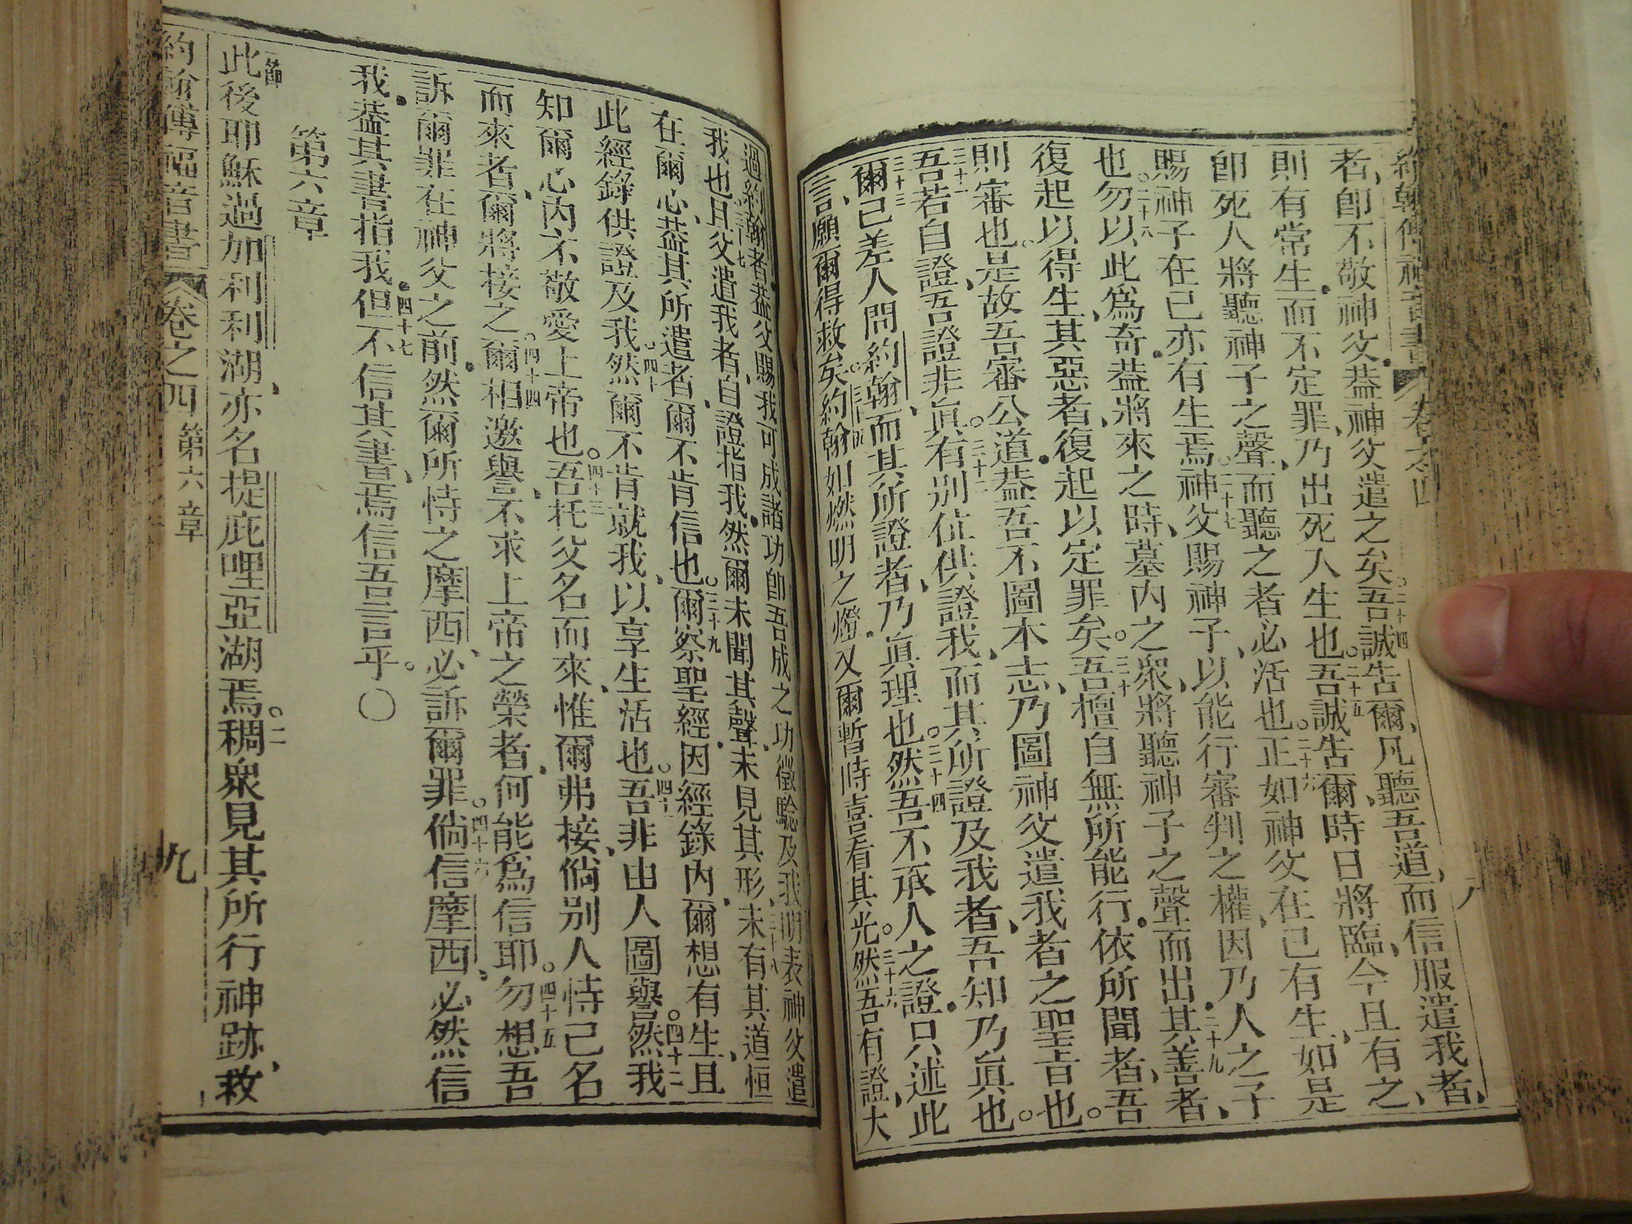 約翰傳福音書 卷之四 八
者、卽不敬神父。葢神父遣之矣。二十四吾誠吿爾、凡聽吾道、而信服遣我者、
則有常生。而不定罪、乃出死入生也。二十五吾誠吿爾、時日將臨、今且有之、
卽死人將聽神子之聲、而聽之者必活也。二十六正如神父在己有生、如是
賜神子在己亦有生焉。二十七神父賜神子、以能行審判之權、因乃人之子
也。二十八勿以此爲奇。葢將來之時、墓內之衆、將聽神子之聲。二十九而出其善者、
復起以得生、其惡者、復起以定罪矣。三十吾擅自無所能行。依所聞者、吾
則審也。是故吾審公道。葢吾不圖本志、乃圖神父遣我者之聖旨也。
三十一吾若自證、吾證非眞。三十二有別位供證我、而其所證及我者、吾知乃眞也。
三十三爾已差人問約翰、而其所證者、乃眞理也。三十四然吾不承人之證。只述此
言、願爾得救矣。三十五約翰如燃明之燈。又爾暫時喜看其光。三十六然吾有證、大
過約翰者。葢父賜我可成諸功、卽吾成之功、徵驗及我、明表神父遣
我也。三十七且父遣我者、自證指我。然爾未聞其聲、未見其形、三十八未有其道恒
在爾心。葢其所遣者、爾不肯信也。三十九爾察聖經、因經錄內、爾想有生、且
此經錄供證及我。四十然爾不肯就我、以享生活也。四十一吾非由人圖譽。四十二然我
知爾心內不敬愛上帝也。四十三吾托父名而來、惟爾弗接、倘別人恃己名
而來者、爾將接之。四十四爾相邀譽、不求上帝之榮者、何能爲信耶。四十五勿想吾
訴爾罪在神父之前。然爾所恃之摩西、必訴爾罪。四十六倘信摩西、必然信
我。葢其書指我。四十七但不信其書、焉信吾言乎。〇
第六章
一節此後耶穌過加利利湖、亦名提庇哩亞湖焉。二稠衆見其所行神跡、救
約翰傳福音書 卷之四 第六章 九